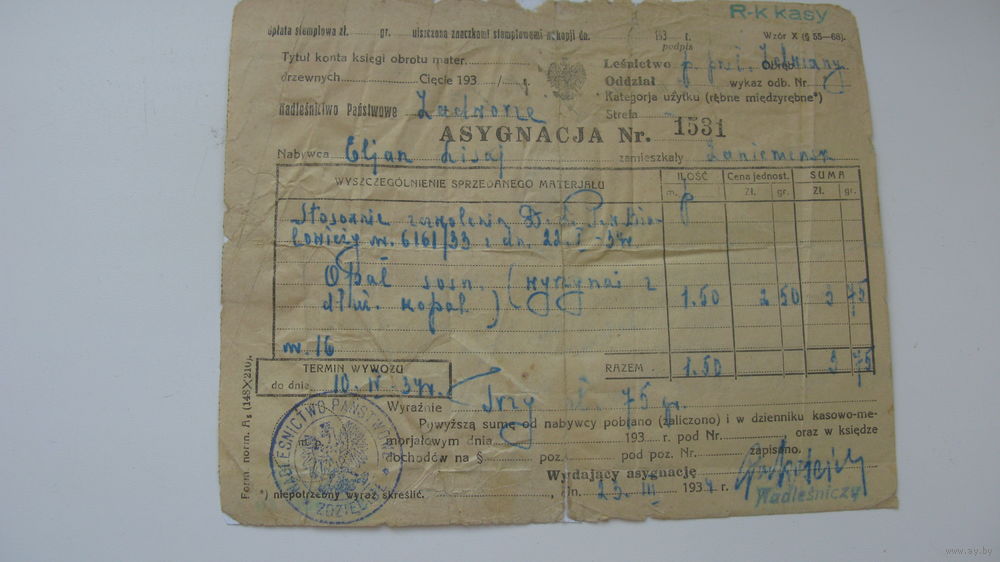 R-k kasy
Opłata stemplowa zł. gr. uiszczona znaczkami stemplowemi w kopji dn. 193 r.
podpis
Wzór X (§ 55—68).
Tytuł konta księgi obrotu mater.
drzewnych Cięcie 193 / r.
Leśnictwo Obręb
Oddział wykaz odb. Nr
Kategorja użytku (rębne międzyrębne*)
Strefa
Nadleśnictwo Państwowe
ASYGNACJA Nr. 1531
Nabywca Eljan Lisaj zamieszkały
WYSZCZEGÓLNIENIE SPRZEDANEGO MATERJAŁU
ILOŚĆ Cena jednost. SUMA
m. Zł. gr. Zł. gr.
Stosownie zezwolenia D. L. P. w Biało-
wieży nr. 6161/33 z dn. 22.I-34r
Opał sosn. (wyrzynai z
dłuż. kopal.) 1.50 2 50 3 75
m. 16
RAZEM 1.50 3 75
TERMIN WYWOZU
do dnia 10. IV - 34r.
Wyraźnie Trzy zł. 75 gr.
Powyższą sumę od nabywcy pobrano (zaliczono) i w dzienniku kasowo-me-
morjałowym dnia 193 r. pod Nr. oraz w księdze
dochodów na § poz. pod poz. Nr. zapisano.
Wydający asygnację
*) niepotrzebny wyraz skreślić. , dn. 23. III 1934 r.
Nadleśniczy
NADLEŚNICTWO PAŃSTWOWE
Form. norm. A5 (148X210).
www.ay.by